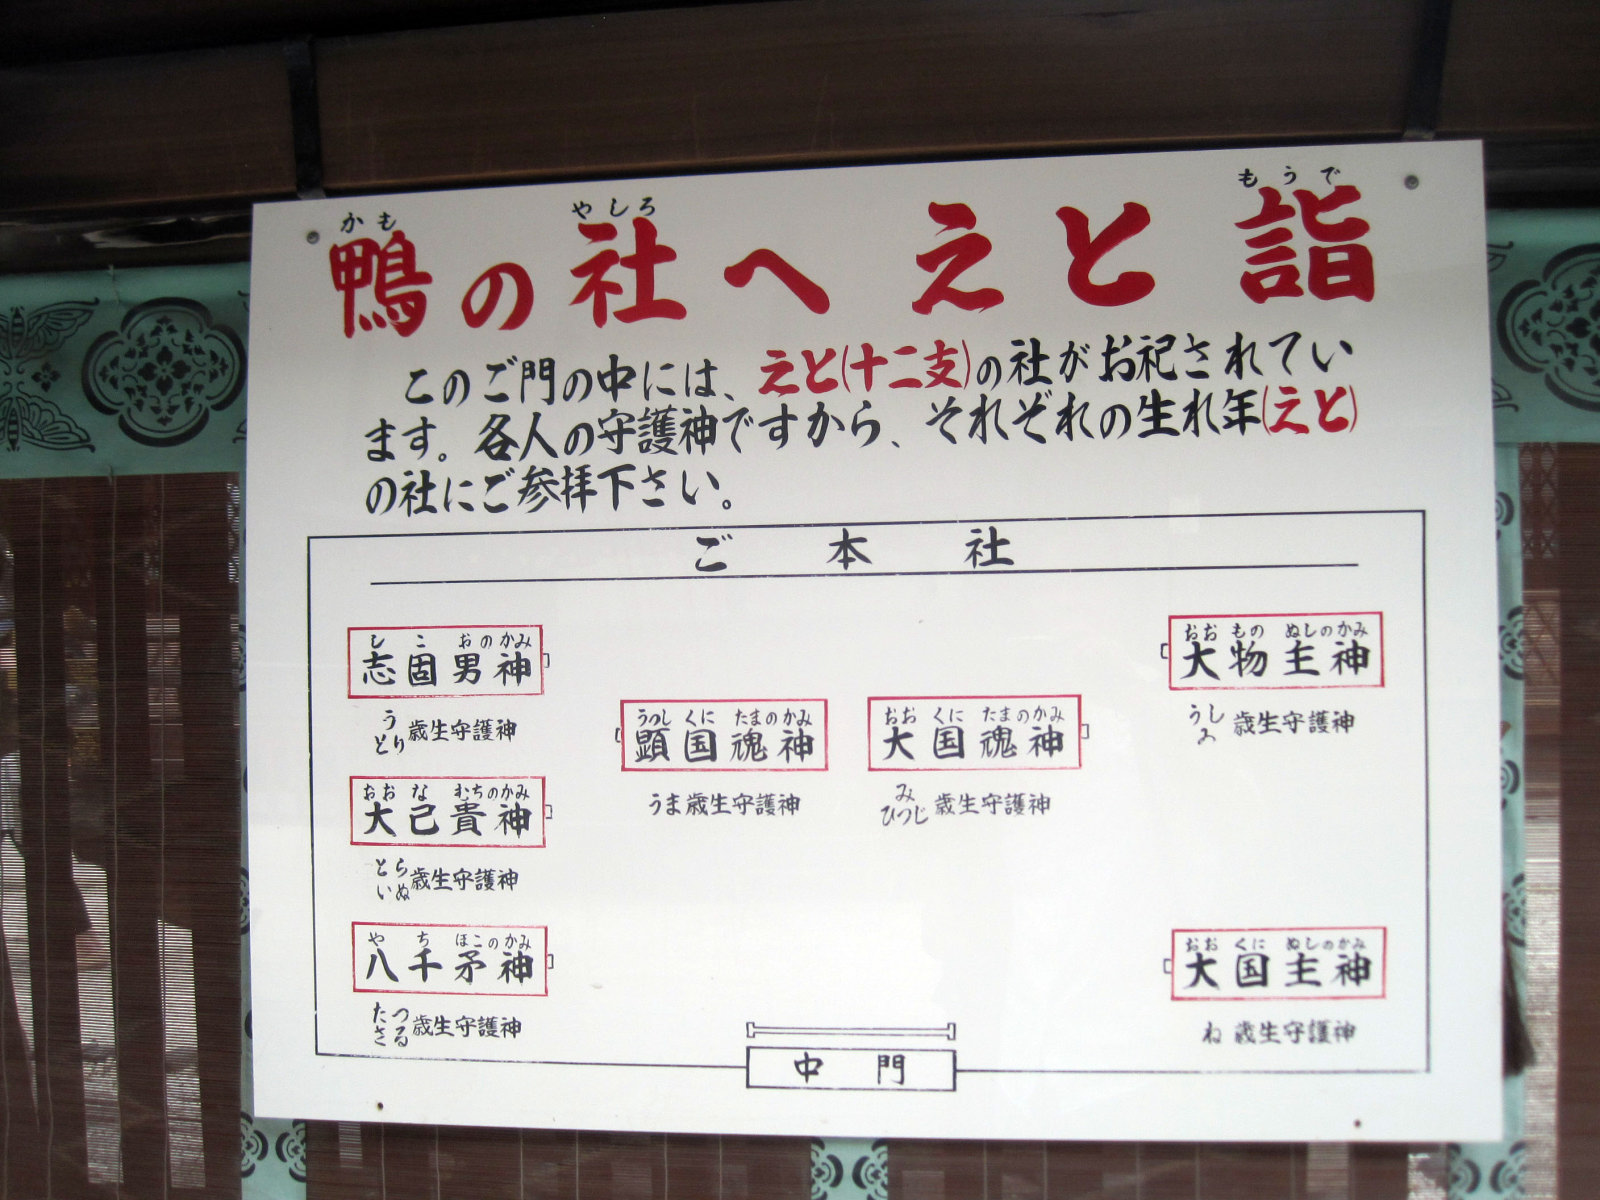 かも やしろ もうで
鴨の社へ えと詣
このご門の中には、えと(十二支)の社がお祀されてい
ます。各人の守護神ですから、それぞれの生れ年(えと)
の社にご参拝下さい。
ご本社
しこおのかみ
志固男神
う とり 歳生守護神
おおなむちのかみ
大己貴神
とら いぬ 歳生守護神
やちほこのかみ
八千矛神
たつ さる 歳生守護神
うつしくにたまのかみ
顕国魂神
うま歳生守護神
おおくにたまのかみ
大国魂神
み ひつじ 歳生守護神
おおものぬしのかみ
大物主神
うし ゐ 歳生守護神
おおくにぬしのかみ
大国主神
ね 歳生守護神
中門